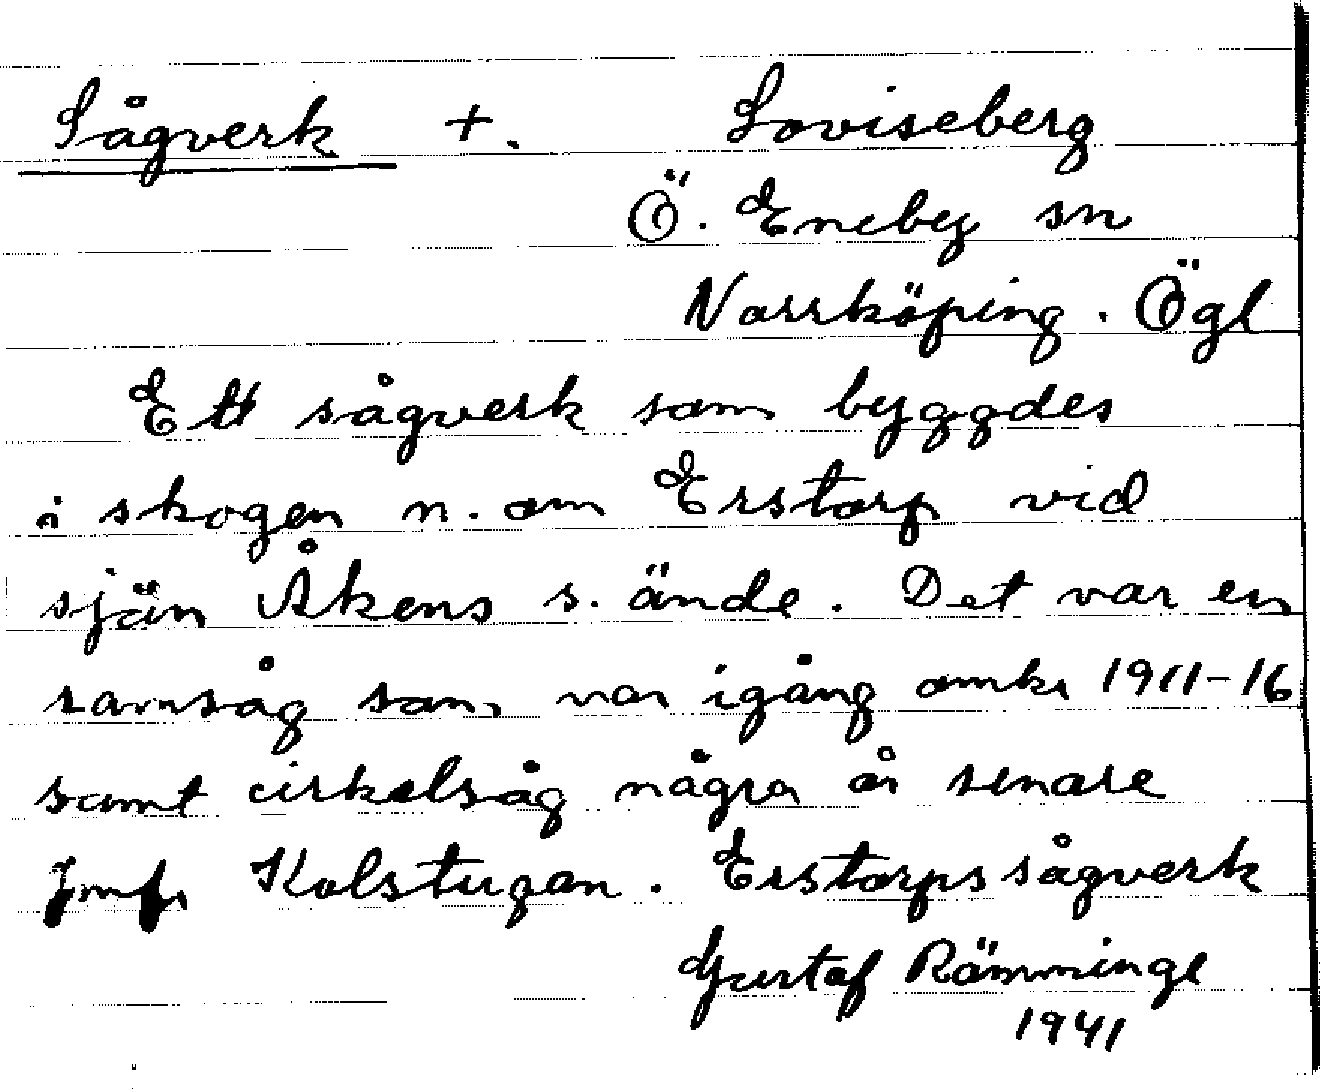 Sågverk +. Loviseberg
Ö. Eneby sn
Norrköping. Ögl
Ett sågverk som byggdes
i skogen n. om Erstorp vid
sjön Åkens s. ände. Det var en
ramsåg som var igång omkr 1911-16
samt cirkelsåg några år senare
Jmfr Kolstugan. Erstorps sågverk
Gustaf Römminge
1941